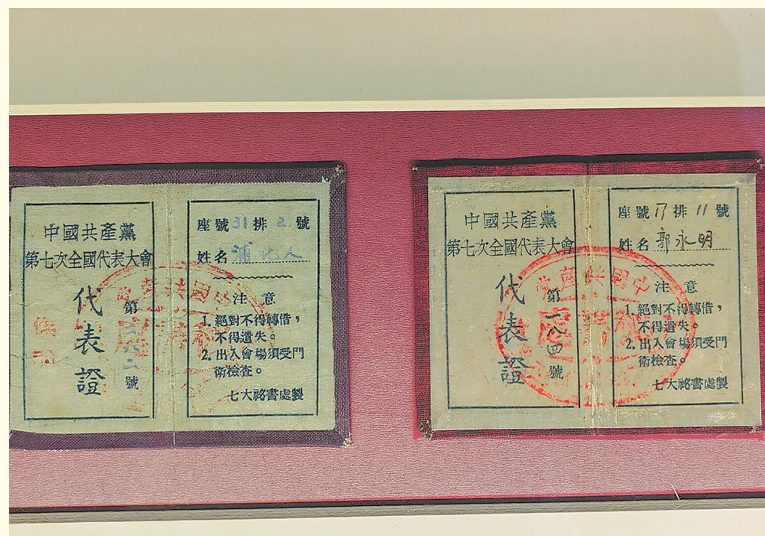 中國共產黨
第七次全國代表大會
代表證
第 號
座號31排2號
姓名 浦化人
注意
1. 絕對不得轉借，
不得遺失。
2. 出入會場須受門
衛檢查。
七大祕書處製
中國共產黨
第七次全國代表大會
代表證
第一八四號
座號17排11號
姓名 郭永明
注意
1. 絕對不得轉借，
不得遺失。
2. 出入會場須受門
衛檢查。
七大祕書處製